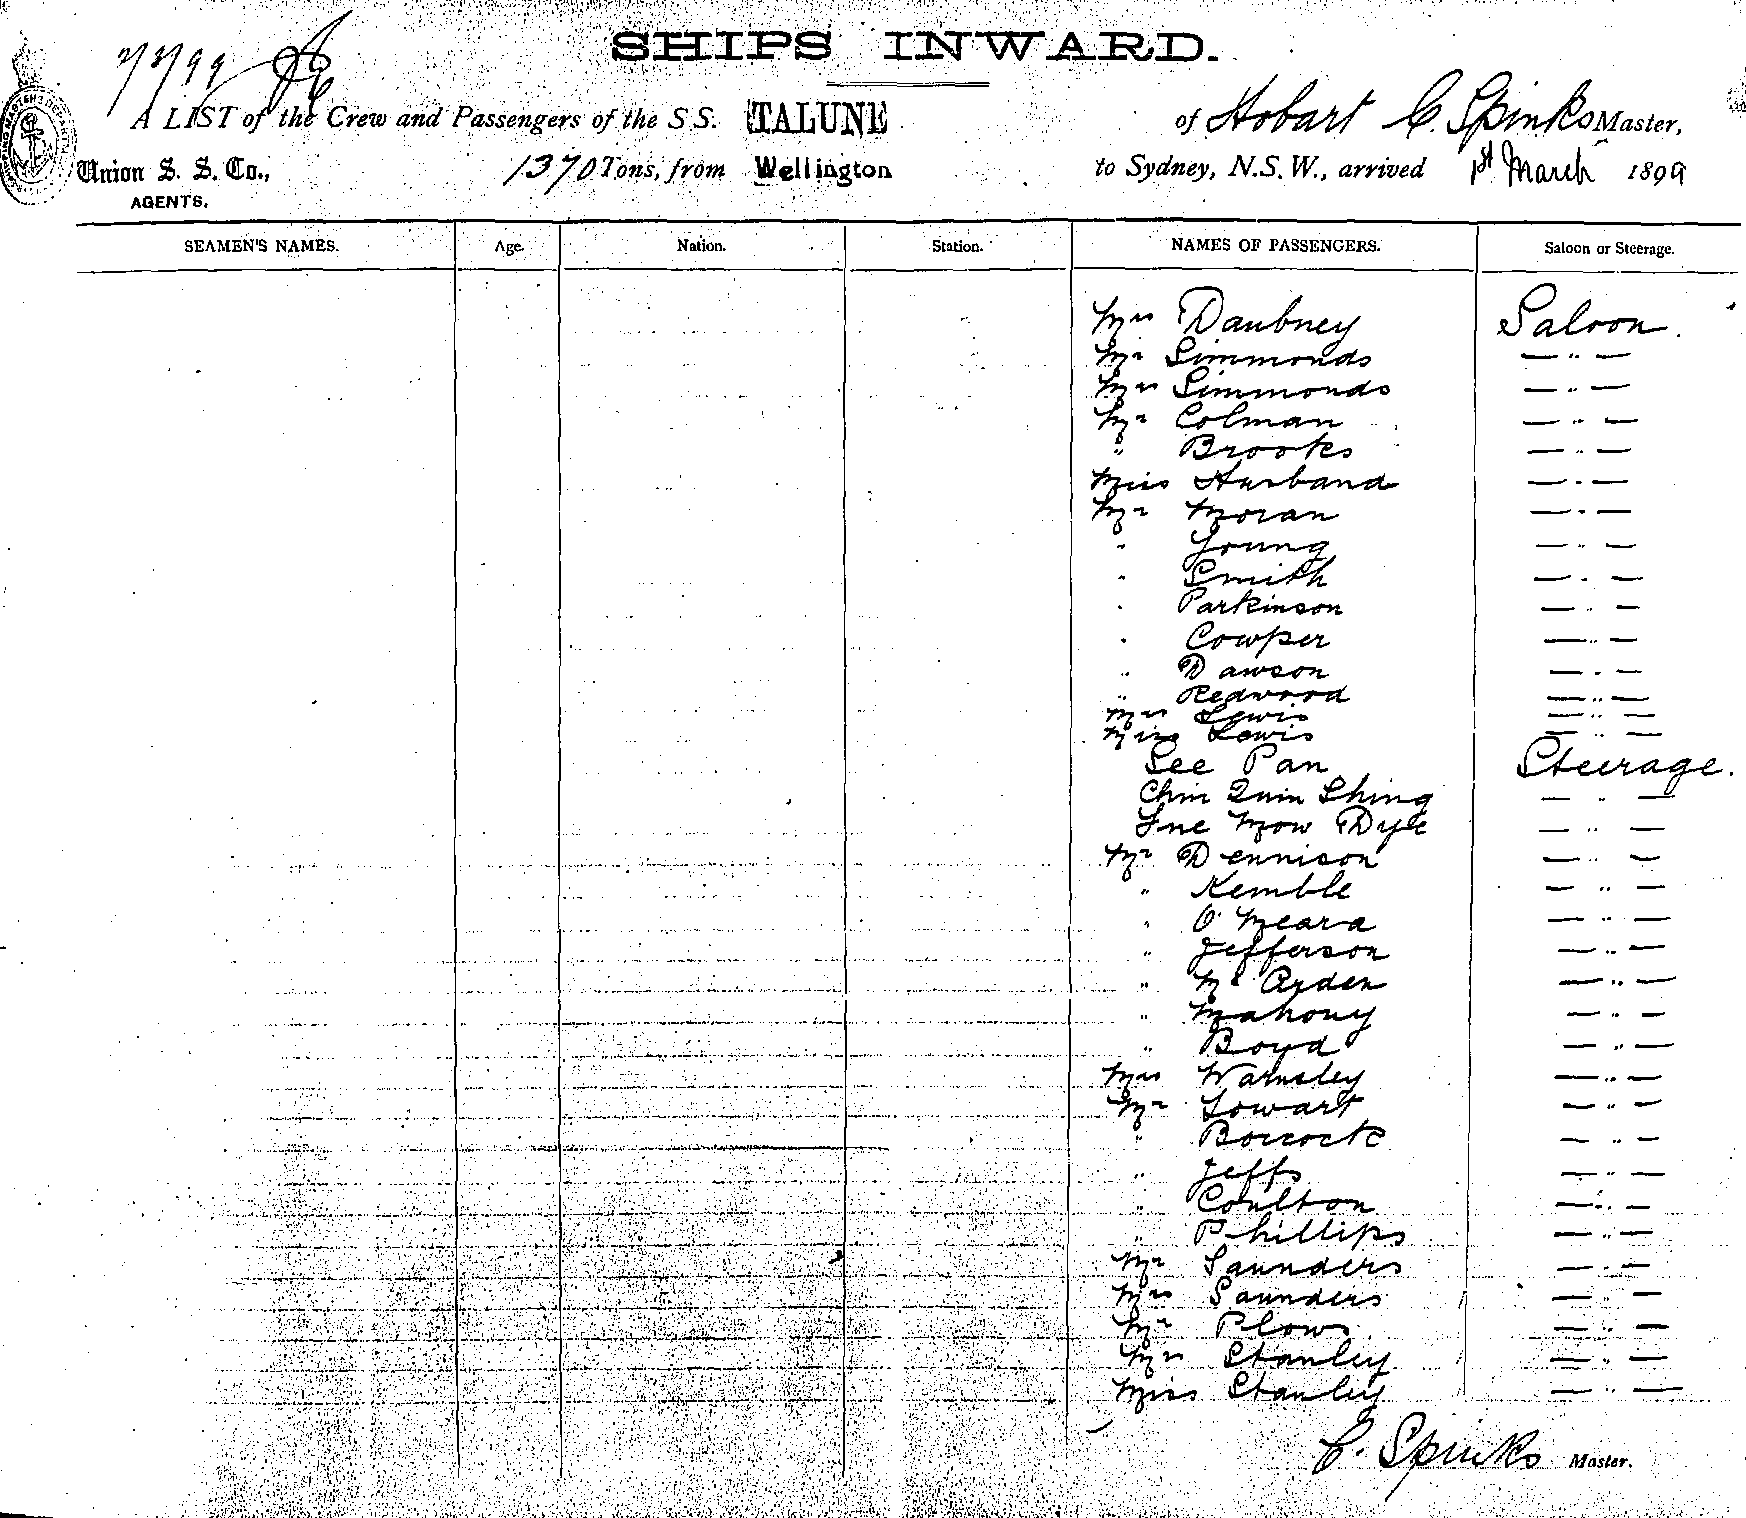 SHIPS INWARD.
A LIST of the Crew and Passengers of the S.S. TALUNE of Hobart C. Spinks Master,
Union S. S. Co., 1370 Tons, from Wellington to Sydney, N.S.W., arrived 1st March 1899
AGENTS.
SEAMEN'S NAMES. Age. Nation. Station. NAMES OF PASSENGERS. Saloon or Steerage.
Mrs Daubney Saloon.
Mr Simmonds — " —
Mrs Simmonds — " —
Mr Colman — " —
" Brooks — " —
Miss Husband — " —
Mr Moran — " —
" Young — " —
" Smith — " —
" Parkinson — " —
" Cowper — " —
" Dawson — " —
" Redwood — " —
Mrs Lewis — " —
Miss Lewis — " —
See Pan Steerage.
Chin Quin Shing — " —
Mow — " —
Mr Dennison — " —
" Kemble — " —
" O'Meara — " —
" Jefferson — " —
" Mc — " —
" Mahony — " —
" Boyd — " —
Mrs Walmsley — " —
Mr Lowart — " —
" — " —
" Jeffs — " —
" Coulton — " —
" Phillips — " —
Mr Saunders — " —
Mrs Saunders — " —
Mr Plows — " —
Mrs Stanley — " —
Miss Stanley — " —
C. Spinks Master.